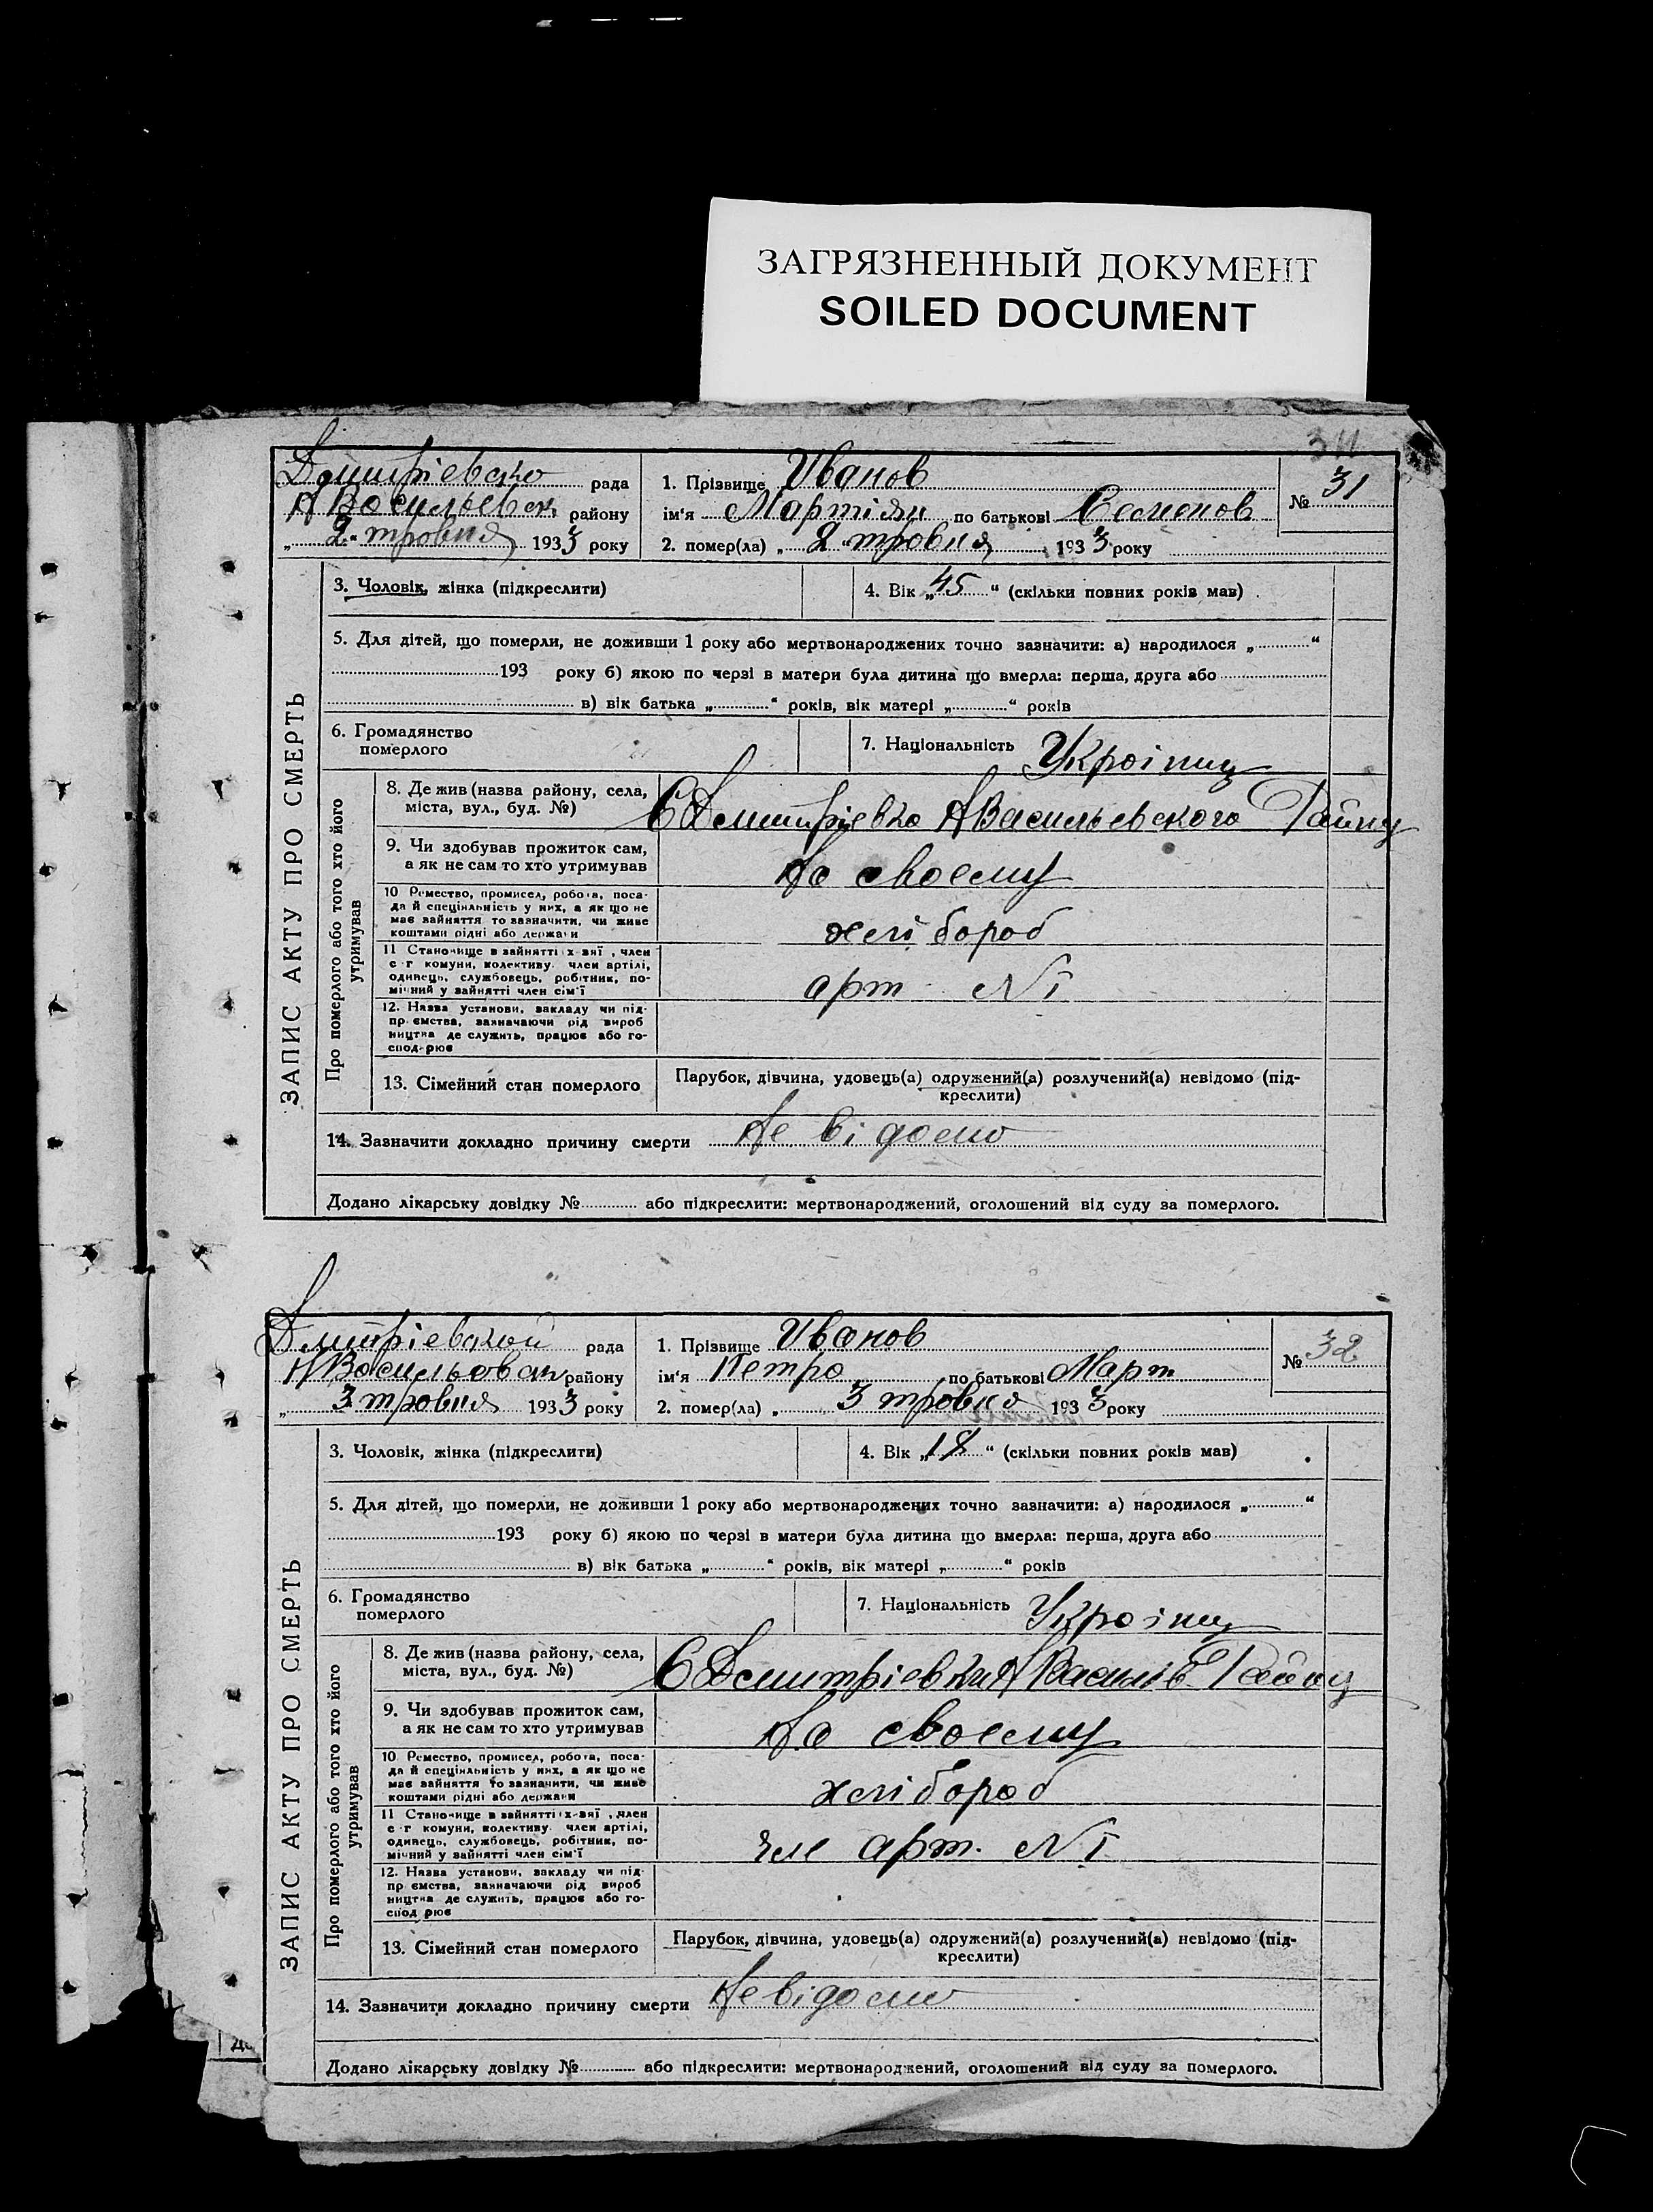 ЗАГРЯЗНЕННЫЙ ДОКУМЕНТ
SOILED DOCUMENT
311
Дмитрієвсько рада
Н Васильевск району
„ 2 " травня 1933 року
1. Прізвище Иванов
ім'я Мартіян по батькові Семенов
2. помер(ла) „ 2 " травня 1933 року
№ 31
ЗАПИС АКТУ ПРО СМЕРТЬ
3. Чоловік, жінка (підкреслити)
4. Вік „45" (скільки повних років мав)
5. Для дітей, що померли, не доживши 1 року або мертвонароджених точно зазначити: а) народилося „ "
193 року б) якою по черзі в матери була дитина що вмерла: перша, друга або
в) вік батька „ " років, вік матері „ " років
6. Громадянство
померлого
7. Національність Україниц
Про померлого або того хто його
утримував
8. Де жив (назва району, села,
міста, вул., буд. №)
С Дмитрієвка Н Васильевского Району
9. Чи здобував прожиток сам,
а як не сам то хто утримував
На своему
10 Ремество, промисел, робота, поса-
да й спеціяльність у них, а як що не
має зайняття то зазначити, чи живе
коштами рідні або держави
хлібороб
11 Становище в зайнятті х-ві , член
с г комуни, колективу, член артілі,
одинець, службовець, робітник, по-
мічний у зайнятті член сім'ї
арт N I
12. Назва установи, закладу чи під-
пр ємства, зазначаючи рід вироб
ництва де служить, працює або го-
спод рює
13. Сімейний стан померлого
Парубок, дівчина, удовець(а) одружений(а) розлучений(а) невідомо (під-
креслити)
14. Зазначити докладно причину смерти Не відомо
Додано лікарську довідку № або підкреслити: мертвонароджений, оголошений від суду за померлого.
Дмитрієвской рада
Н Васильован району
„ 3 травня 1933 року
1. Прізвище Иванов
ім'я Петро по батькові Март
2. помер(ла) „ 3 травня 1933 року
№ 32
ЗАПИС АКТУ ПРО СМЕРТЬ
3. Чоловік, жінка (підкреслити)
4. Вік „18" (скільки повних років мав)
5. Для дітей, що померли, не доживши 1 року або мертвонароджених точно зазначити: а) народилося „ "
193 року б) якою по черзі в матери була дитина що вмерла: перша, друга або
в) вік батька „ " років, вік матері „ " років
6. Громадянство
померлого
7. Національність Україниц
Про померлого або того хто його
утримував
8. Де жив (назва району, села,
міста, вул., буд. №)
С Дмитрієвки Н Василів Району
9. Чи здобував прожиток сам,
а як не сам то хто утримував
На своему
10 Ремество, промисел, робота, поса-
да й спеціяльність у них, а як що не
має зайняття то зазначити, чи живе
коштами рідні або держави
хлібороб
11 Становище в зайнятті х-ві , член
с г комуни, колективу, член артілі,
одинець, службовець, робітник, по-
мічний у зайнятті член сім'ї
чле арт. N I
12. Назва установи, закладу чи під-
пр ємства, зазначаючи рід вироб
ництва де служить, працює або го-
спод рює
13. Сімейний стан померлого
Парубок, дівчина, удовець(а) одружений(а) розлучений(а) невідомо (під-
креслити)
14. Зазначити докладно причину смерти Невідомо
Додано лікарську довідку № або підкреслити: мертвонароджений, оголошений від суду за померлого.